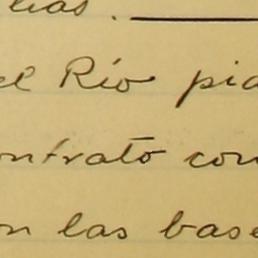 las.
el Río pia
ontrato con
on las base